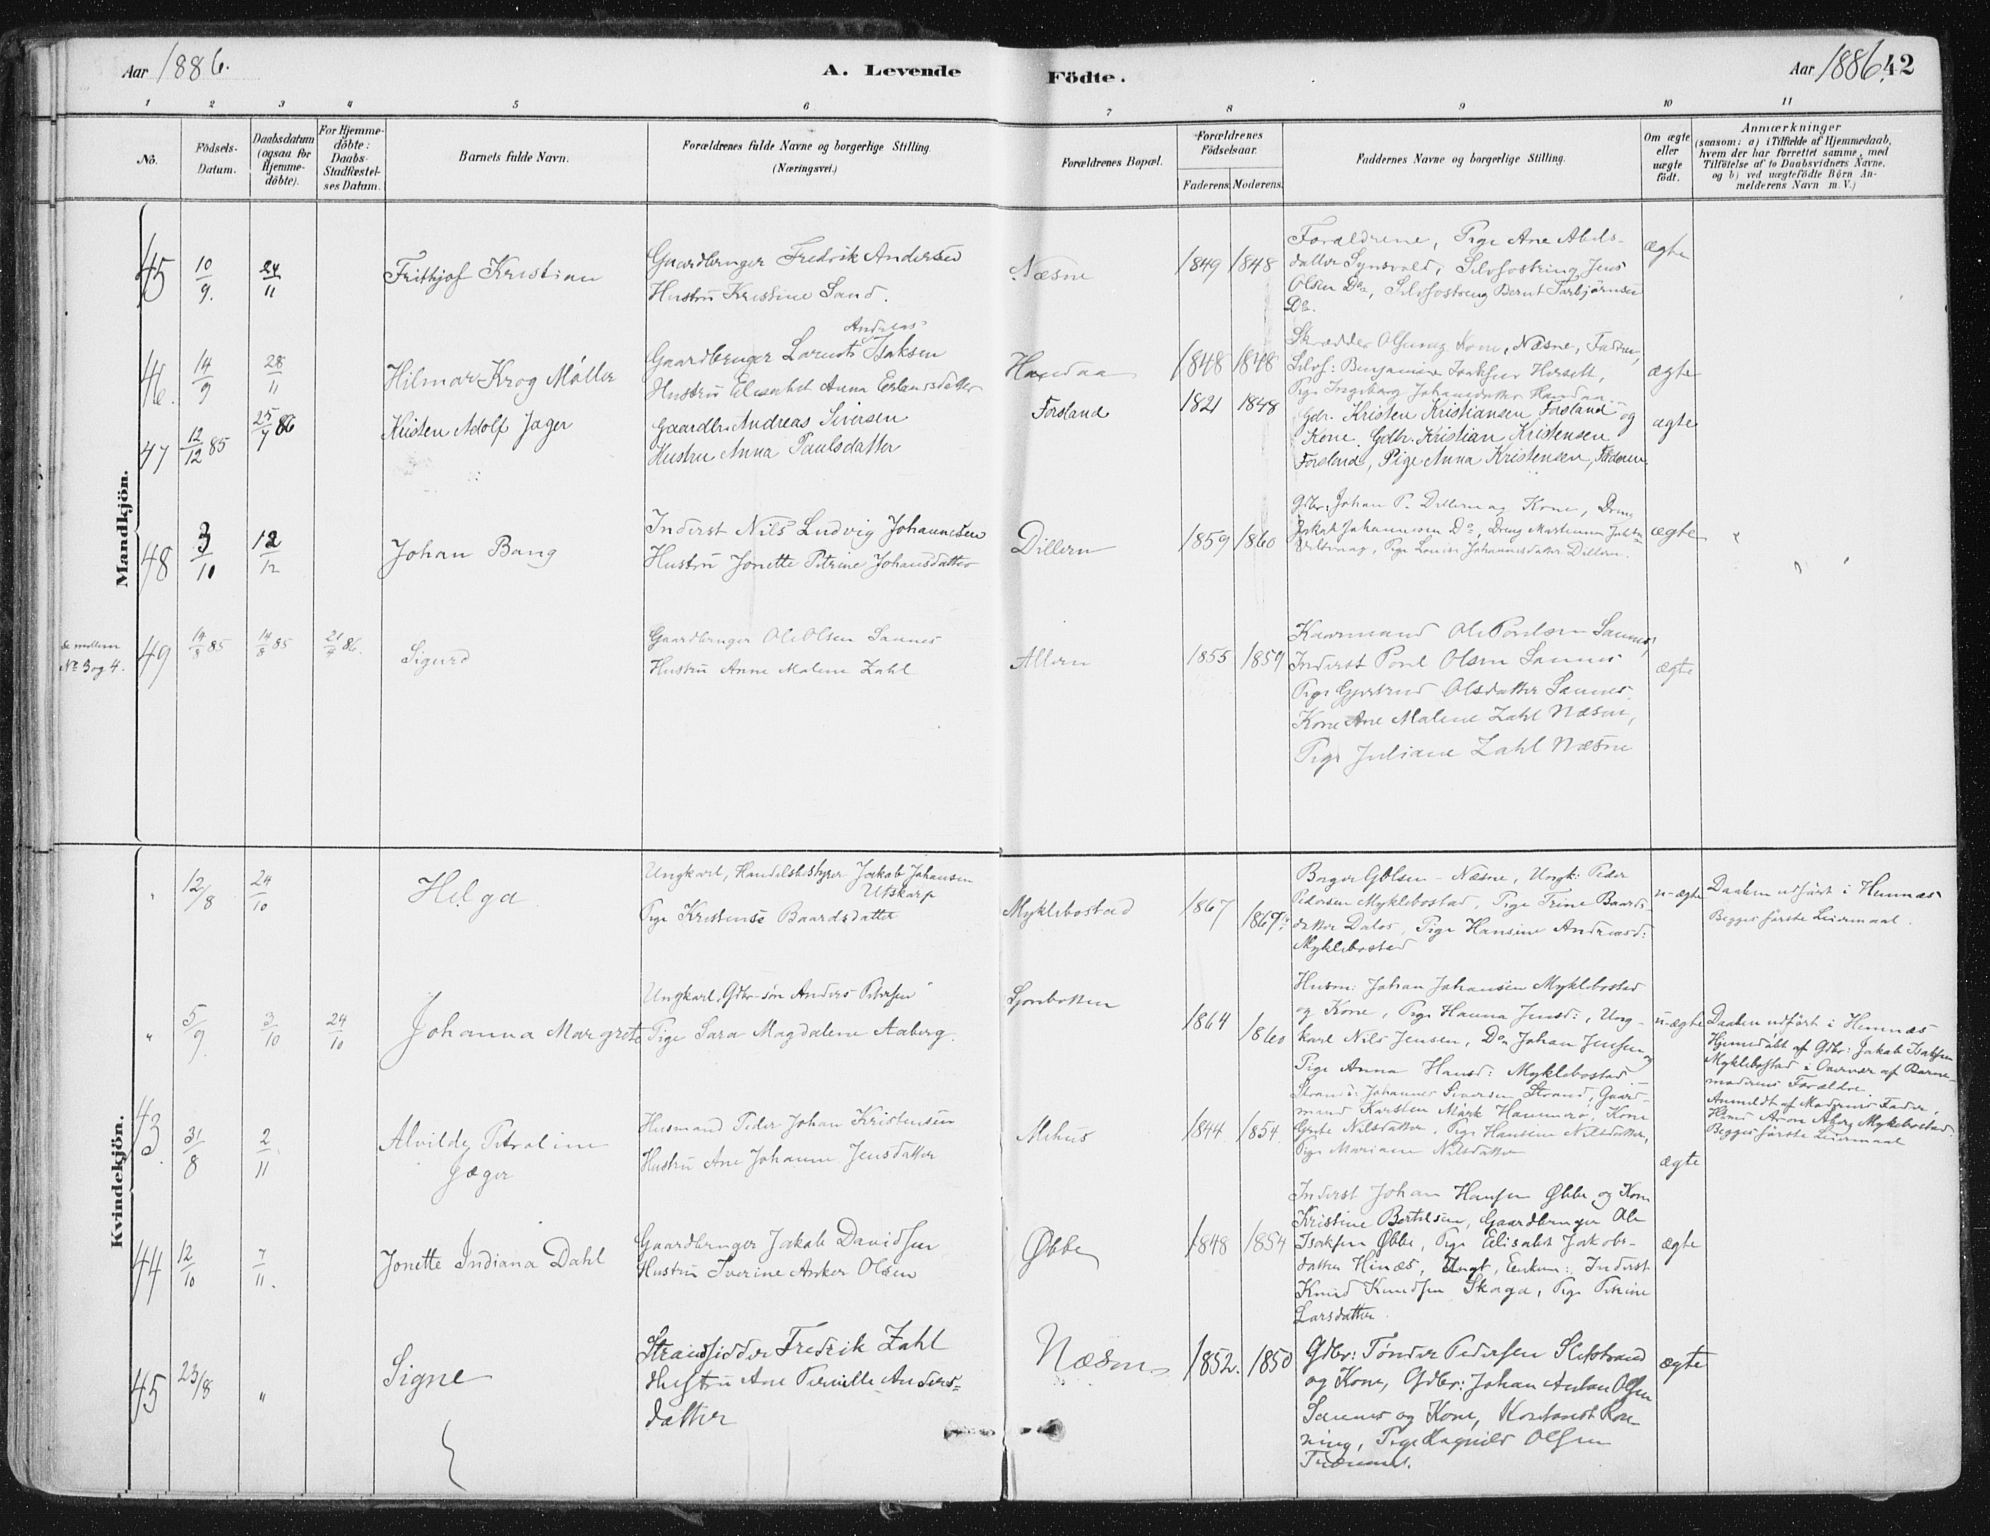 Aar 1886.
A. Levende
Födte.
Aar 1886.
42
1 2 3 4 5 6 7 8 9 10 11
No.
Födsels-
Datum.
Daabsdatum
(ogsaa for
Hjemme-
döbte).
For Hjemme-
döbte:
Daabs-
Stadfæstel-
ses Datum.
Barnets fulde Navn.
Forældrenes fulde Navne og borgerlige Stilling
(Næringsvei.)
Forældrenes Bopæl.
Forældrenes
Födselsaar.
Faderens. Moderens.
Faddernes Navne og borgerlige Stilling.
Om ægte
eller
uægte
födt.
Anmærkninger
(saasom: a) i Tilfælde af Hjemmedaab,
hvem der har forrettet samme, med
Tilföielse af to Daabsvidners Navne,
og b) ved uægtefödte Börn An-
melderens Navn m. V.)
Mandkjön.
45 10/9. 24/11 Frithjof Kristian
Gaardbruger Fredrik Andersen
Hustru Kristine Sand.
Næsne 1849 1848
Forældrene, Pige Ane Abels-
datter Synsvold, Selvfostring Jens
Olsen Do, Selvfostreng Bernt Torbjørnsen
Do.
ægte
46. 14/9 28/11 Hilmar Krog Møller
Andreas
Gaardbruger Lornots Isaksen
Hustru Elisabet Anna Erlandsdatter
Handaa 1848 1848
Skrædder Olsen og Kone, Næsne, Faderen,
Selvf: Benjamin Isaksen
Pige Ingeborg Johansdatter Handaa
ægte
47 12/12 85 25/9 86 Kristen Adolf Jager
Gaardbr. Andreas Siversen
Hustru Anna Paulsdatter
Forsland 1821 1848
Gdr. Kristen Kristiansen Forsland og
Kone. Gdbr. Kristian Kristensen
Forsland, Pige Anna Kristensen, Faderen.
ægte
48 3/10 12/12 Johan Bang
Inderst Nils Ludvig Johannesen
Hustru Jonette Petrine Johansdatter
Dillern 1859 1860
Gdbr: Johan P. Dillern og Kone, Dreng
Jakob Johannesen Do, Dreng Martinus
Pige Lovise Johannesdatter Dillern.
ægte
Se mellem
No 3 og 4.
49 14/8 85 14/8 85 21/7 86. Sigurd
Gaardbruger Ole Olsen Sannes
Hustru Anne Malene Zahl
Allern 1855 1859
Kaarmand Ole Poulsen Sannes,
Inderst Poul Olsen Sannes
Pige Gjertrud Olsdatter Sannes.
Kone Ane Malene Zahl Næsne,
Pige Juliane Zahl Næsne
ægte
Kvindekjön.
" 12/8 24/10 Helga
Ungkarl, Handelsbestyrer Jakob Johansen
Utskarp
Pige Kristense Baardsdatter
Myklebostad 1867 1869
Borger Olsen - Næsne, Ungk: Peder
Pedersen Myklebostad, Pige Trine Baards-
datter Dalos, Pige Hansine Andreasd:
Myklebostad
u-ægte
Daaben udført i Hemnæs
Begges første Leiermaal.
" 5/9. 3/10 24/10 Johanna Margrete
Ungkarl, Gdbr-søn Anders Petersen
Pige Sara Magdalene Aaberg.
Sjonbotten 1864 1860
Husm: Johan Johansen Myklebostad
og Kone, Pige Hanna Jensd:, Ung-
karl Nils Jensen, Do Johan Jensen og
Pige Anna Hansd: Myklebostad.
u-ægte
Daaben udført i Hemnæs
Hjemmedøbt af Gdbr: Jakob Isaksen
Myklebostad i Overvær af Barne-
moderens Forældre.
Anmeldt af Moderens Fader,
Aron Aberg Myklebostad.
Begges første Leiermaal
43. 31/8 2/11 Alvilde Petroline
Jæger
Husmand Peder Johan Kristensen
Hustru Ane Johanna Jensdatter
Mehus 1844. 1854.
Strands: Johannes Siversen Strand, Gaard-
mand Karsten Mark Hammerø, Kone
Grete Nilsdatter, Pige Hansine Nilsdatter,
Pige Mariane Nilsdatter
ægte
44 12/10 7/11. Jonette Indiana Dahl
Gaardbruger Jakob Davidsen
Hustru Iverine Anker Olsen
Øbbe 1848 1854
Inderst Johan Hansen Øbbe og Kone
Kristine Bertelsen, Gaardbruger Ole
Isaksen Øbbe, Pige Elisabet Jakobs-
datter Hinæs, Inderst
Knud Knudsen Skaga, Pige Petrine
Larsdatter.
ægte
45 23/8 " Signe
Strandsidder Fredrik Zahl
Hustru Ane Pernille Anders-
datter
Næsne 1852. 1850
Gdbr: Tønder Pedersen
og Kone, Gdbr: Johan Anton Olsen
Sannes og Kone, Kontorist Røn-
ning, Pige Ragnild Olsen
ægte